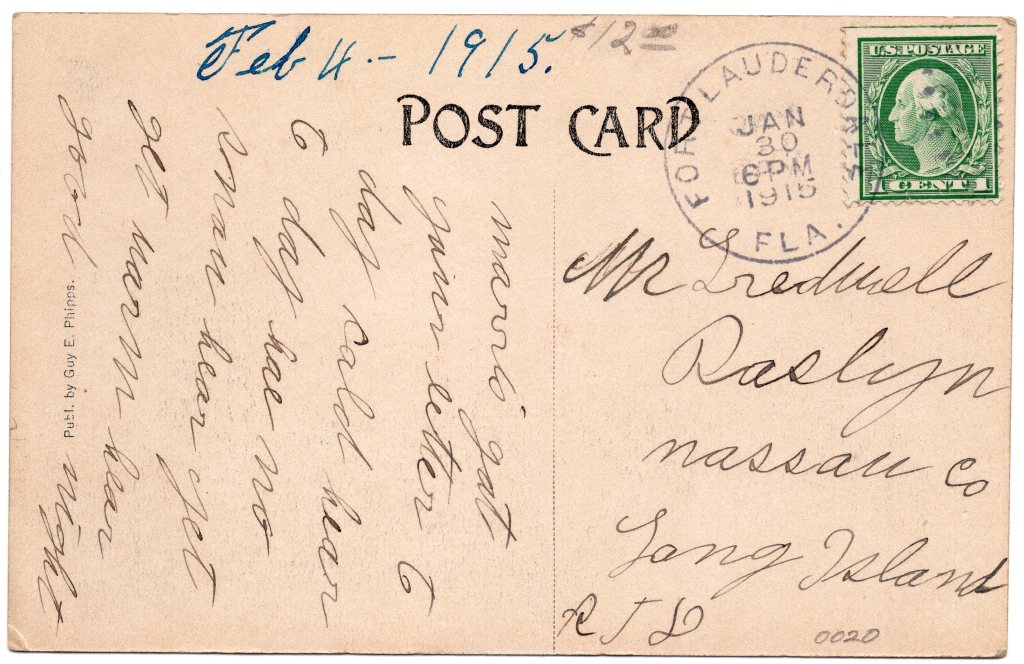 Feb 4 - 1915.
$12 00
POST CARD
FORT LAUDERDALE
JAN
30
6 PM
1915
FLA.
U.S. POSTAGE
1 CENT 1
gat
your letter to
day cald hear
to day hae no
snow hear yet
get warm hear
good night
Publ. by Guy E. Phipps.
Mr Tredwell
Raslyn
nassau co
Long Island
R F D
0020